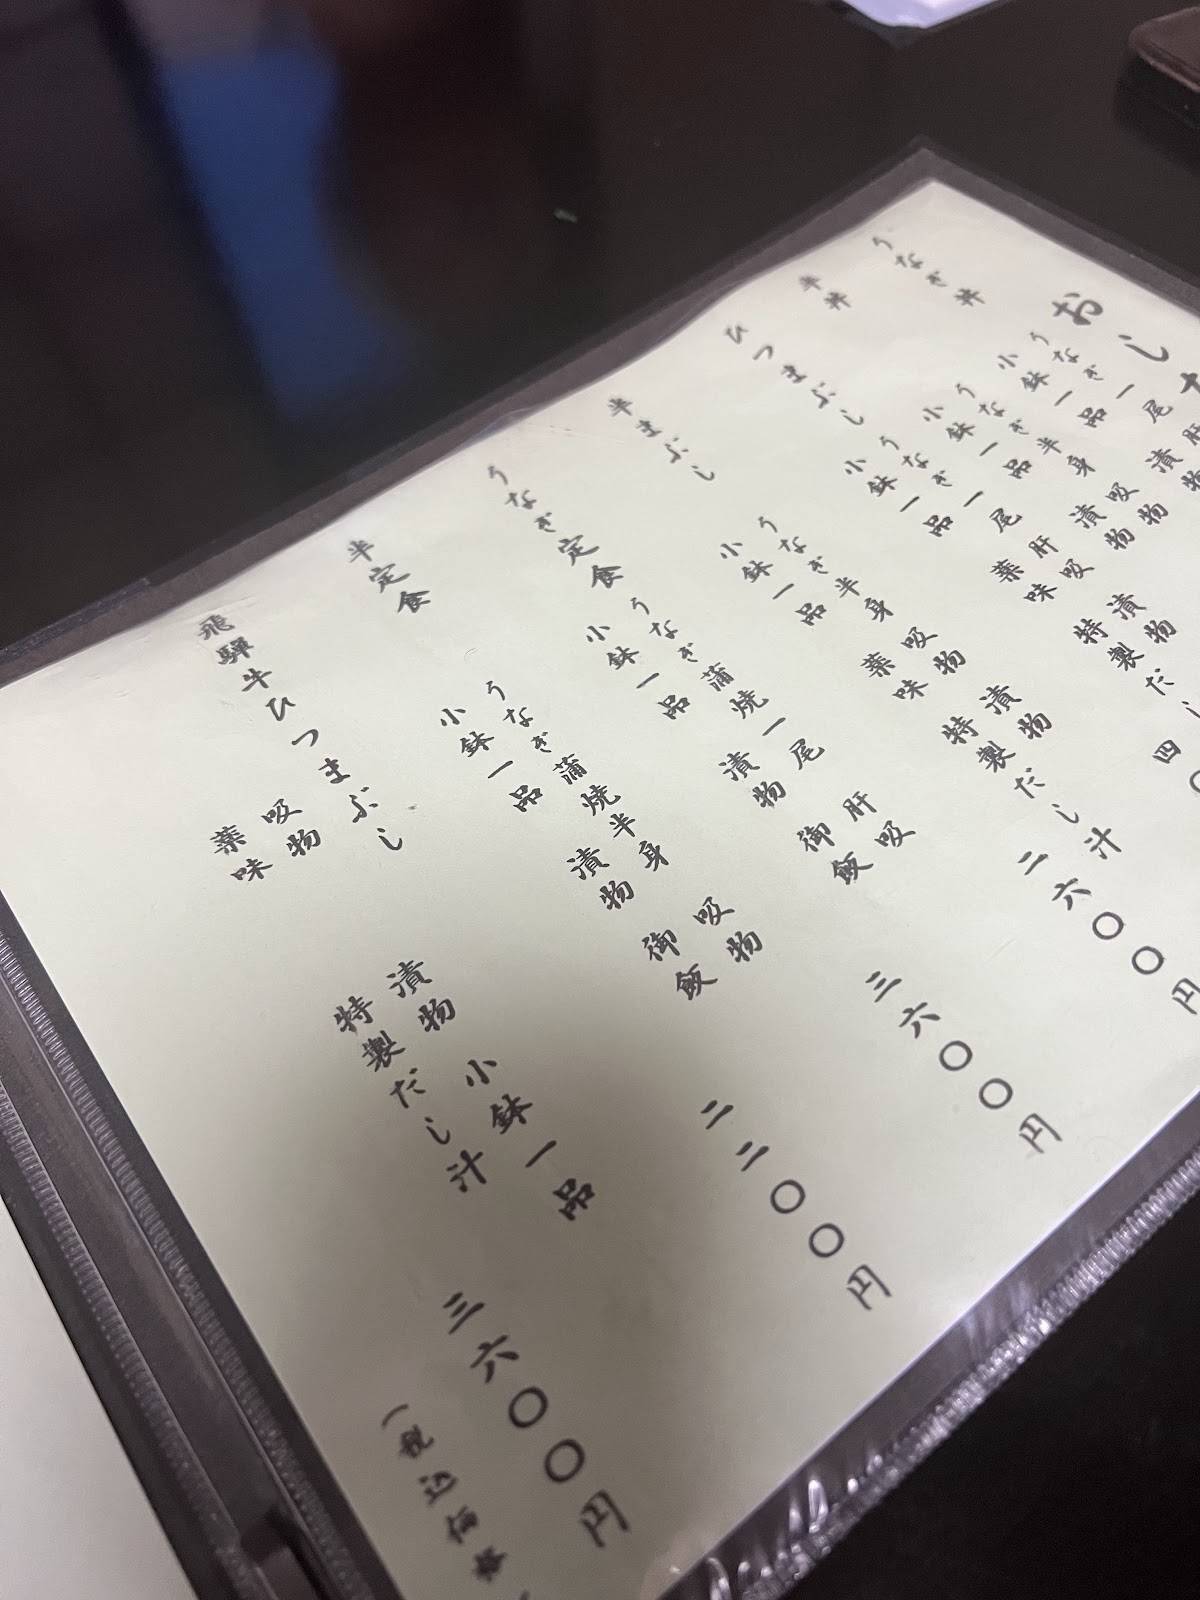 おし
うなぎ丼
うなぎ一尾
小鉢一品 漬物
半丼
うなぎ半身 吸物
小鉢一品 漬物
ひつまぶし
うなぎ一尾 肝吸 漬物
小鉢一品 薬味 特製だし 四〇
半まぶし
うなぎ半身 吸物 漬物
小鉢一品 薬味 特製だし汁 二六〇〇円
うなぎ定食
うなぎ蒲焼一尾 肝吸
小鉢一品 漬物 御飯 三六〇〇円
半定食
うなぎ蒲焼半身 吸物
小鉢一品 漬物 御飯 二二〇〇円
飛騨牛ひつまぶし
吸物 漬物 小鉢一品
薬味 特製だし汁 三六〇〇円
(税込価格